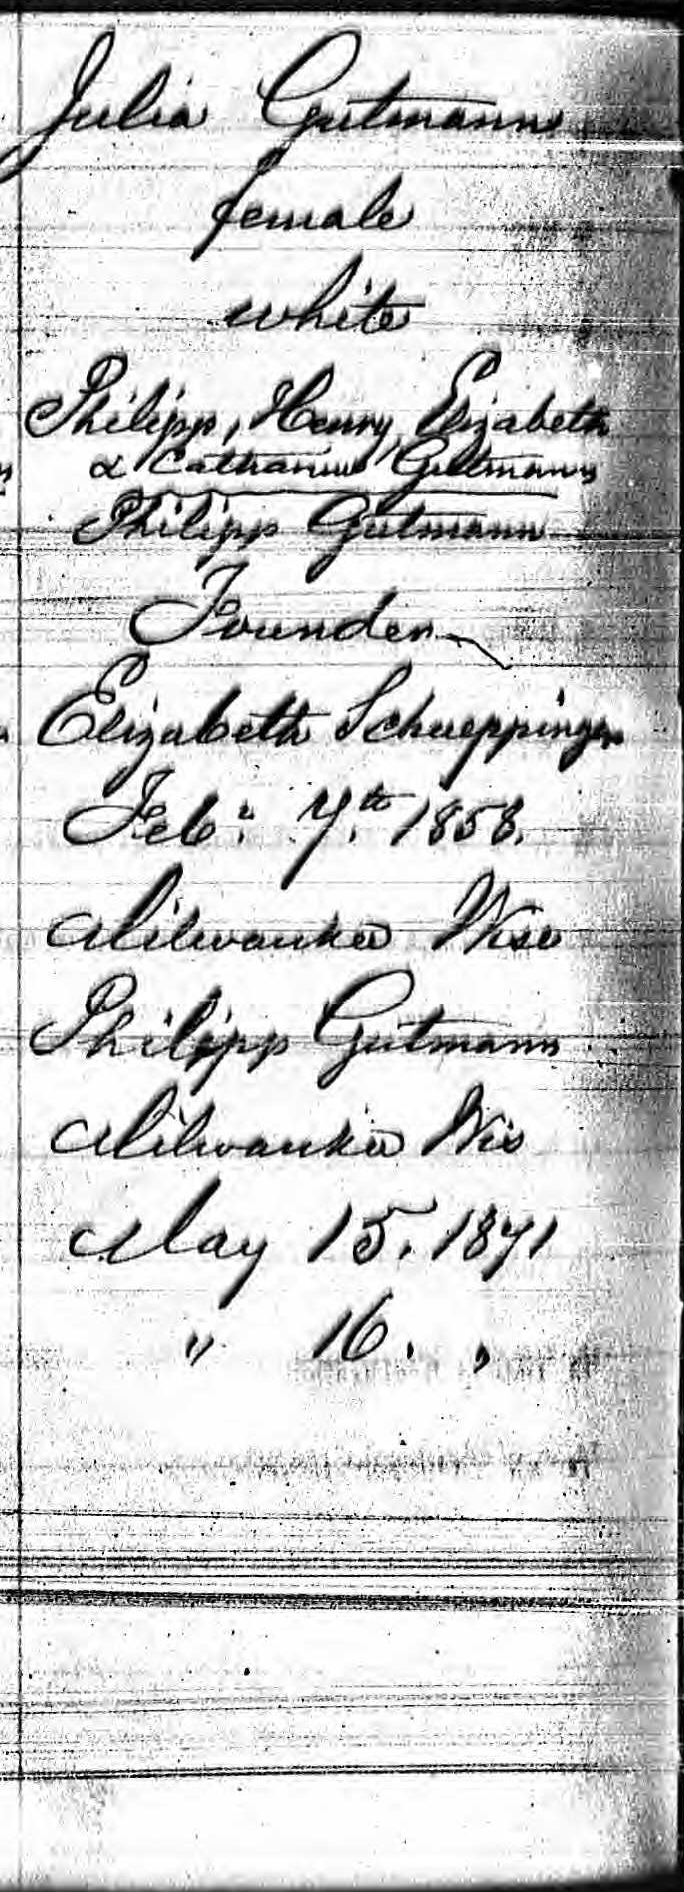 Julia Gutmann
female
white
Philipp, Henry, Elizabeth
& Catharine Gutmann
Philipp Gutmann
Founder
Elizabeth Schueppinger
Feb. 7th 1858.
Milwaukee Wisc
Philipp Gutmann
Milwaukee Wis
May 15. 1871
" 16. "